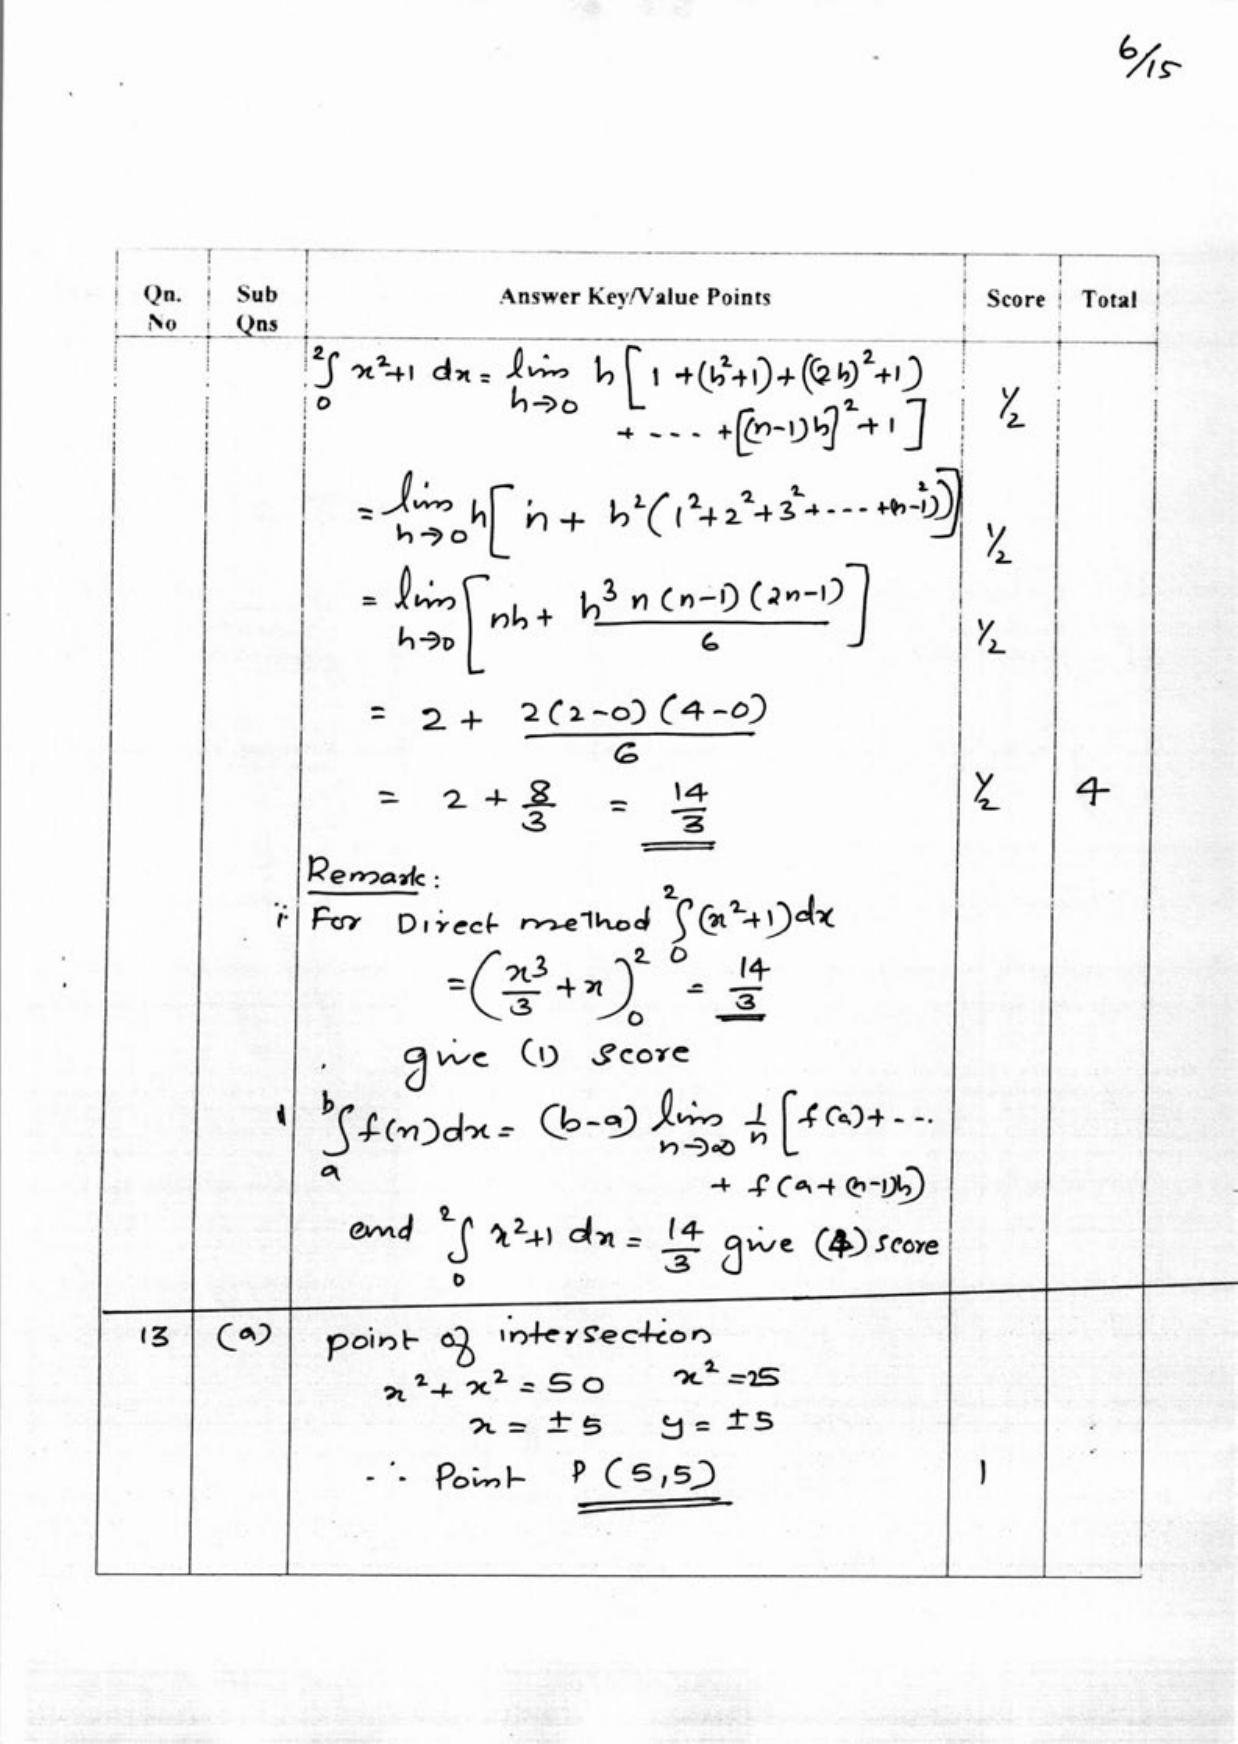 6/15
Qn. No | Sub Qns | Answer Key/Value Points | Score | Total
₀∫² x²+1 dx = lim h→0 h[1 + (h²+1) + ((2h)²+1)
+ ---- + [(n-1)h]² + 1] 1/2
= lim h→0 h[n + h²(1²+2²+3²+----+(n-1)²)] 1/2
= lim h→0 [nh + h³ n(n-1)(2n-1)/6] 1/2
= 2 + 2(2-0)(4-0)/6
= 2 + 8/3 = 14/3 1/2 4
Remark:
For Direct method ₀∫² (x²+1)dx
= (x³/3 + x)₀² = 14/3
give (1) score
ₐ∫ᵇ f(x)dx = (b-a) lim n→∞ 1/n [f(a)+---
+ f(a+(n-1)h)
and ₀∫² x²+1 dx = 14/3 give (4) score
13 (a) point of intersection
x² + x² = 50 x² = 25
x = ±5 y = ±5
∴ Point P (5,5) 1